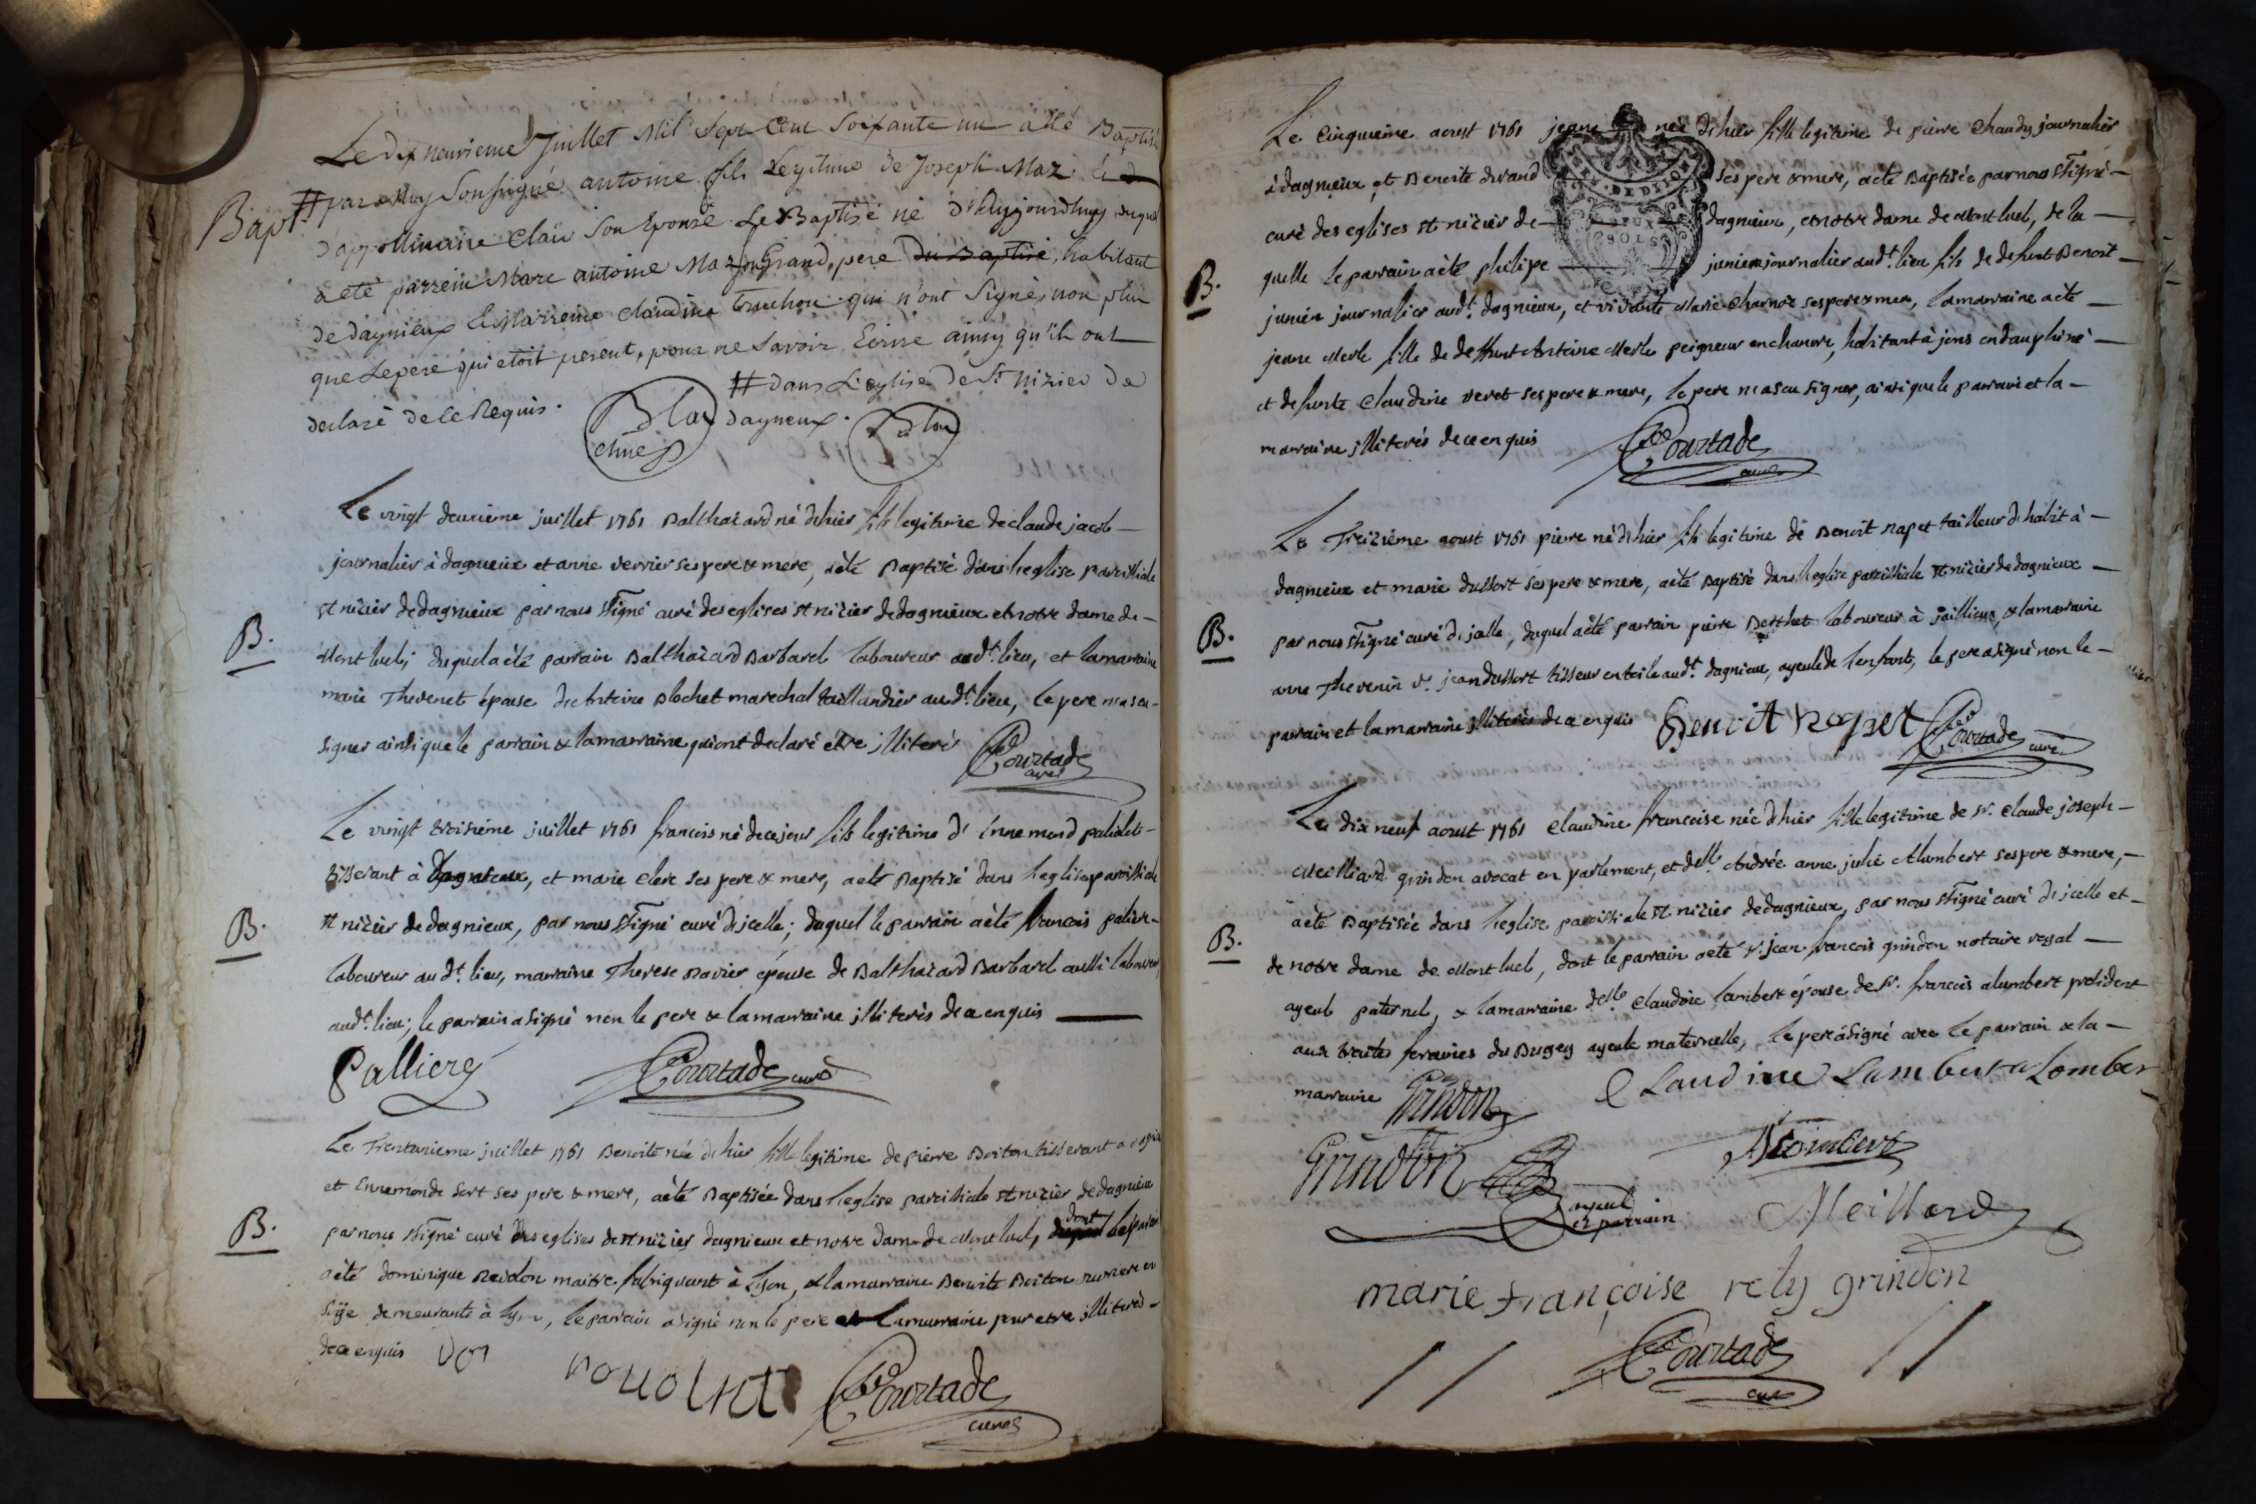 Le dix neuvieme Juillet Mil Sept Cent Soixante un a été Baptisé
# par Moy Sousigné antoine fils Legitime de Joseph Maz et
Bapt.
d'appollinaire Clair Son Epouse Le Baptisé né d'aujourdhuy duquel
a été parrein Marc antoine Maz Grand pere du Baptisé, habitant
de dagnieux La Marreine Claudine Truchon qui n'ont Signé, non plus
que Le pere qui etoit present, pour ne Savoir Ecrire ainsy qu'ils ont
declaré de ce Requis.
# dans L'eglise de St nizier de
dagneux.
B.
Le vingt deuxième juillet 1761 Balthazard né d'hier fils legitime de claude jacob
journalier à dagnieux et anne verrier ses pere & mere, a été Baptisé dans l'eglise paroissiale
st nizier de dagnieux par nous ssigné curé des eglises st nizier de dagnieux et notre dame de
Mont luel; duquel a été parrain Balthazard Barbaret laboureur audt. lieu, et la marraine
marie Thevenet épouse de Antoine Blochet marechal taillandier audt. lieu, le pere n'a scu
signer ainsi que le parrain & la marraine qui ont declaré etre illiterés
Courtade
curé
B.
Le vingt troisième juillet 1761 francois né de ce jour fils legitime d'Ennemond
tisserant à dagnieux, et marie clerc ses pere & mere, a été Baptisé dans l'eglise paroissiale
st nizier de dagnieux, par nous ssigné curé d'icelle; duquel le parrain a été francois
laboureur audt. lieu, marraine Therese Bavier épouse de Balthazard Barbaret aussi laboureur
audt. lieu; le parrain a signé non le pere & la marraine illiterés de ce enquis
Palliere
Courtade curé
B.
Le Trentunieme juillet 1761 Benoite née d'hier fille legitime de pierre Boiton tisserant a
et Ennemonde Sert ses pere & mere, a été Baptisée dans l'eglise paroissiale st nizier de dagnieux
par nous ssigné curé des eglises de st nizier dagnieux et notre dame de Mont luel, dont le parrain
a été dominique maitre fabriquant à Lyon, & la marraine Benoite Boiton en
soye demeurante à Lyon, le parrain a signé non le pere et la marraine pour etre illiterés
de ce enquis
Courtade
curé
B.
Le Cinquieme aoust 1761 jeane née d'hier fille legitime de pierre Chandy journalier
à dagnieux et Benoite durand ses pere & mere, a été Baptisée par nous ssigné
curé des eglises st nizier de dagnieux, et notre dame de Mont luel, de la
quelle le parrain a été philipe junien journalier audt. lieu fils de defunt Benoit
junien journalier audt. dagnieux, et vivante Marie Charnoz ses pere & mere, la marraine a été
jeane Merle fille de deffunt Antoine Merle peigneur en chanvre, habitant à jons en dauphiné
et defunte Claudine veret ses pere & mere, le pere n'a scu signer, ainsi que le parrain et la
marraine illiterés de ce enquis
Courtade
curé
B.
Le Treizième aoust 1761 pierre né d'hier fils legitime de Benoit napet tailleur d'habit à
dagnieux et marie dussort ses pere & mere, a été Baptisé dans l'eglise paroissiale st nizier de dagnieux
par nous ssigné curé d'icelle, duquel a été parrain pierre Berthet laboureur à jaillieux, & la marraine
anne Thevenin ve. jean dussort tisseur en toile audt. dagnieux, ayeule de l'enfant, le pere a signé non le
parrain et la marraine illiterés de ce enquis
Benoit napet
Courtade curé
B.
Le dix neuf aoust 1761 Claudine francoise née d'hier fille legitime de sr. Claude joseph
Meilliard grindon avocat en parlement, et delle. Andrée anne julie Alumbert ses pere & mere,
a été Baptisée dans l'eglise paroissiale st nizier de dagnieux, par nous ssigné curé d'icelle et
de notre dame de Mont luel, dont le parrain a été sr. jean francois grindon notaire royal
ayeul paternel, & la marraine delle Claudine lambert épouse de sr. francois alumbert president
aux traites foraines du Bugey ayeule maternelle, le pere a signé avec le parrain & la
marraine
Grindon
Claudine Lambert
Grindon
ayeul
et parrain
Meilliard
marie françoise rely grindon
Courtade
curé